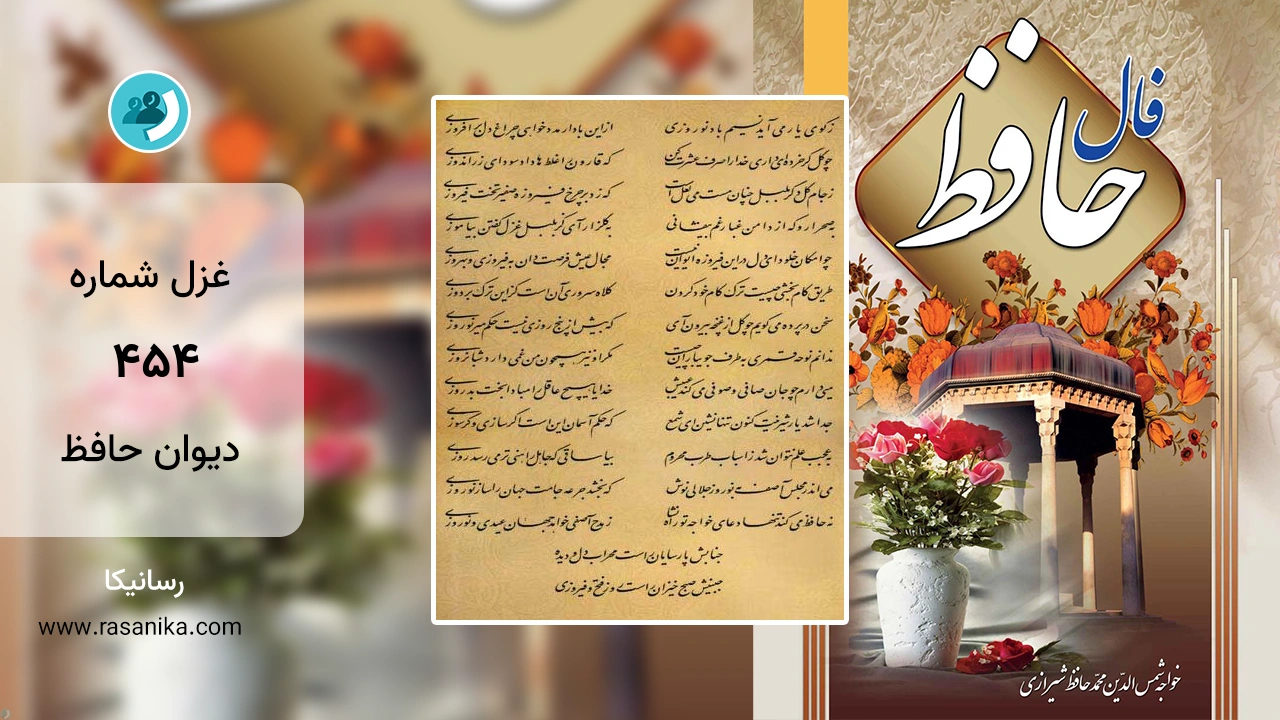 فال
حافظ
ز کوی یار می آید نسیم باد نوروزی از این باد ار مدد خواهی چراغ دل برافروزی
چو گل گر خرده ای داری خدا را صرف عشرت کن که قارون را غلط ها داد سودای زراندوزی
ز جام گل دگر بلبل چنان مست می لعل است که زد بر چرخ فیروزه صفیر تخت فیروزی
به صحرا رو که از دامن غبار غم بیفشانی به گلزار آی کز بلبل غزل گفتن بیاموزی
چو امکان خلود ای دل در این فیروزه ایوان نیست مجال عیش فرصت دان به فیروزی و بهروزی
طریق کام بخشی چیست ترک کام خود کردن کلاه سروری آن است کز این ترک بردوزی
سخن در پرده می گویم چو گل از غنچه بیرون آی که بیش از پنج روزی نیست حکم میر نوروزی
ندانم نوحه قمری به طرف جویباران چیست مگر او نیز همچون من غمی دارد شبانروزی
می ای دارم چو جان صافی و صوفی می کند عیبش خدایا هیچ عاقل را مبادا بخت بد روزی
جدا شد یار شیرینت کنون تنها نشین ای شمع که حکم آسمان این است اگر سازی و گر سوزی
به عجب علم نتوان شد ز اسباب طرب محروم بیا ساقی که جاهل را هنی تر می رسد روزی
می اندر مجلس آصف به نوروز جلالی نوش که بخشد جرعه جامت جهان را ساز نوروزی
نه حافظ می کند تنها دعای خواجه تورانشاه ز مدح آصفی خواهد جهان عیدی و نوروزی
جنابش پارسایان راست محراب دل و دیده
جبینش صبح خیزان راست روز فتح و فیروزی
خواجه شمس الدین محمد حافظ شیرازی
غزل شماره
۴۵۴
دیوان حافظ
رسانیکا
www.rasanika.com